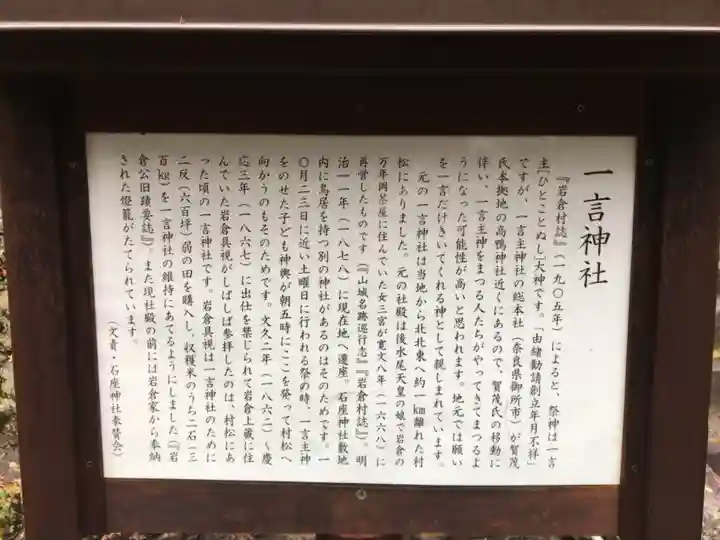 一言神社
『岩倉村誌』(一九〇五年)によると、祭神は一言
主[ひとことぬし]大神です。「由緒勧請創立年月不祥」
ですが、一言主神社の総本社(奈良県御所市)が賀茂
氏本拠地の高鴨神社近くにあるので、賀茂氏の移動に
伴い、一言主神をまつる人たちがやってきてまつるよ
うになった可能性が高いと思われます。地元では願い
を一言だけきいてくれる神として親しまれています。
元の一言神社は当地から北北東へ約一㎞離れた村
松にありました。元の社殿は後水尾天皇の娘で岩倉の
万年岡茶屋に住んでいた女三宮が寛文八年(一六六八)に
再営したものです(『山城名跡巡行志』『岩倉村誌』)。明
治一一年(一八七八)に現在地へ遷座。石座神社敷地
内に鳥居を持つ別の神社があるのはそのためです。一
〇月二三日に近い土曜日に行われる祭の時、一言主神
をのせた子ども神輿が朝五時にここを発って村松へ
向かうのもそのためです。文久二年(一八六二)〜慶
応三年(一八六七)に出仕を禁じられて岩倉上蔵に住
んでいた岩倉具視がしばしば参拝したのは、村松にあ
った頃の一言神社です。岩倉具視は一言神社のために
二反(六百坪)弱の田を購入し、収穫米のうち二石(三
百㎏)を一言神社の維持にあてるようにしました(『岩
倉公旧蹟要誌』)。また現社殿の前には岩倉家から奉納
された燈籠がたてられています。
(文責・石座神社奉賛会)